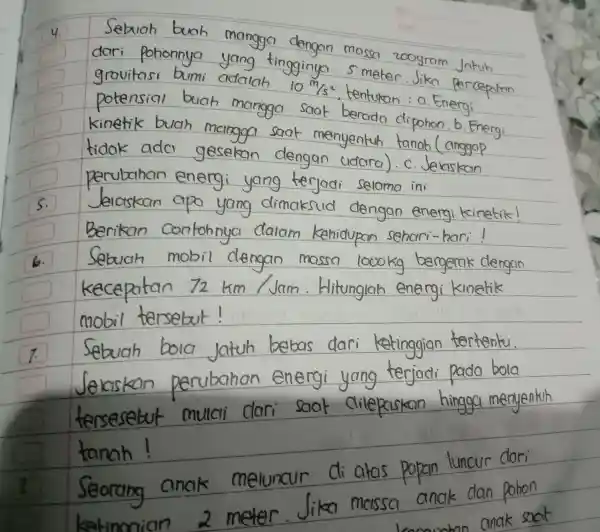 4 Sebuah buah mangga dengan massa 200gram Jatuh
dari Pohonnya yang tingginya 5 meter. Jika Percepatan
gravitasi bumi adalah 10 m/s², tentukan : a. Energi
potensial buah mangga saat berada dipohon b. Energi
kinetik buah mangga saat menyentuh tanah (anggap
tidak ada gesekan dengan udara). c. Jelaskan
perubahan energi yang terjadi selama ini
5. Jelaskan apa yang dimaksud dengan energi kinetik!
Berikan Contohnya dalam kehidupan sehari-hari !
6. Sebuah mobil dengan massa 1000kg bergerak dengan
kecepatan 72 km /Jam. Hitunglah energi kinetik
mobil tersebut !
7. Sebuah bola Jatuh bebas dari ketinggian tertentu.
Jelaskan perubahan energi yang terjadi pada bola
tersesebut mulai dari saat dilepaskan hingga menyentuh
tanah !
Seorang anak meluncur di atas papan luncur dari
ketinggian 2 meter. Jika massa anak dan pohon
anak saat